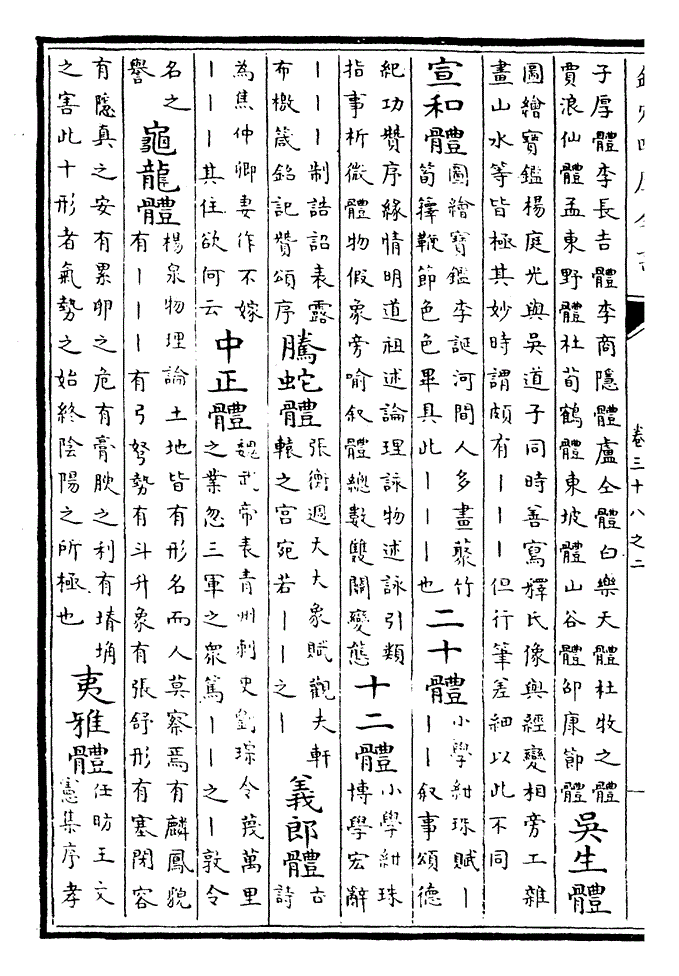 卷三十八之二
子厚體李長吉體李商隱體盧仝體白樂天體杜牧之體
賈浪仙體孟東野體杜荀鶴體東坡體山谷體邵康節體
吳生體
圖繪寶鑑楊庭光與吳道子同時善寫釋氏像與經變相旁工雜
畫山水等皆極其妙時謂頗有｜｜｜但行筆差細以此不同
宣和體
圖繪寶鑑李誕河間人多畫藂竹
筍籜鞭節色色畢具此｜｜｜也
二十體
小學紺珠賦｜
｜｜叙事頌德
紀功贊序緣情明道祖述論理詠物述詠引類
指事析微體物假象旁喻叙體總數雙關變態
十二體
小學紺珠
博學宏辭
｜｜｜制誥詔表露
布檄箴銘記贊頌序
騰蛇體
張衡週大大象賦觀夫軒
轅之宮宛若｜｜之｜
義郎體
古
詩
為焦仲卿妻作不嫁
｜｜｜其住欲何云
中正體
魏武帝表青州刺史劉琮令蔑萬里
之業忽三軍之衆篤｜｜之｜敦令
名之
譽
龜龍體
楊泉物理論土地皆有形名而人莫察焉有麟鳳貌
有｜｜｜有弓弩勢有斗升象有張舒形有塞閉容
有隱真之安有累卵之危有膏腴之利有塉埆
之害此十形者氣勢之始終陰陽之所極也
夷雅體
任昉王文
憲集序孝